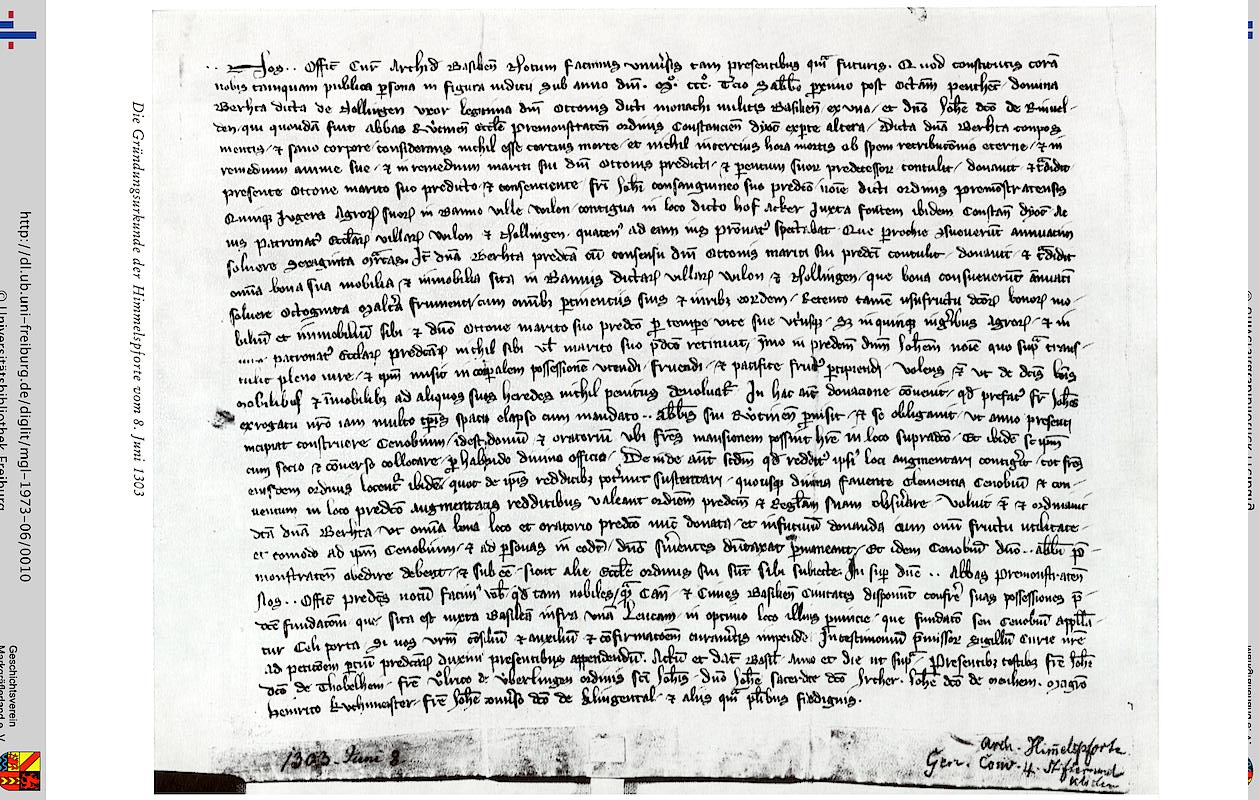 Nos .. Offic Cur Archid Basilien Notum facimus vniuersis tam presentibus quam futuris. Quod constitutis coram
nobis tamquam publica persona in figura iudicij sub anno dni. Mo. ccco. Tcio Sabbo proximo post octam penthec domina
Berhta dicta de Nollingen vxor legitima dni Ottonis dicti monachi militis Basilien ex vna et dno Johe dco de
den qui quondam fuit abbas ordinis Constancien dyoc ex parte altera Dicta dna Berhta compos
mentis et sano corpore considerans nichil esse certius morte et nichil incertius hora mortis ob spem retributionis eterne et in
remedium anime sue et in remedium mariti sui dni Ottonis predicti et parentum suor predecessor contulit donauit et tradidit
presente Ottone marito suo predicto et consentiente fri Johi consanguineo suo predco noie dicti ordinis premonstratensis
Quinque Jugera Agror suor in Banno ville wilon contigua in loco dicto hof acker Juxta fontem ibidem Constan dyoc Ac
ius patronat Ecclar villar wilon et Nollingen quaten ad eam ius pronat spectabat Que parochie consueuerunt annuatim
soluere Sexaginta marcas It dna Berhta predca cu consensu dni Ottonis mariti sui predci contulit donauit et tradidit
omnia bona sua mobilia et inmobilia sita in Bannis dictar villar wilon et Nollingen que bona consueuerunt annuati
soluere Octoginta Maltra frumenti cum omnib pertinentiis suis et iurib eordem Retento tamen usufructu dcor bonor mo
bilium et immobilium sibi et dno Ottone marito suo predco pro tempore vite sue vtriusque Sz in quinque iugeribus Agror et in
patronat Ecclar predcar nichil sibi vel marito suo pdco retinuit ymo in predcm dnm Johem noie quo supra trans
tulit pleno iure et ipm misit in corpalem possessione vtendi fruendi et pacifice fruct percipiendi volens et vt de dcis bonis
mobilibus et immobilib ad aliquos suos heredes nichil penitus deuoluat In hac aut donacione conuenit qd prefat fr Johes
cum mandato .. abbis sui promisit et se obligauit vt anno presenti
incipiat construere Cenobium idest domum et oratorium vbi fres mansionem possint hre in loco supradco Et ibide se ipm
cum socio et conuerso collocare diuino officio Deinde aut scdm qd reddit ipsi loci augmentari contigerit tot fres
eiusdem ordinis locent ibidem quot de ipis reddicib poterunt sustentari quousque diuina fauente Clemencia Cenobium et con
uentum in loco predco augmentatis reddicibus valeant ordinem predcm et Reglam suam obseruare Voluit et ordinauit
dca dna Berhta vt omnia bona loco et oratorio predco nunc donata et infuturum donanda cum omni fructu vtilitate
et comodo ad ipm Cenobium et ad personas in eode dno seruientes dumtaxat permaneant Et idem Cenobium dno .. abbi pre
monstraten obedire debent et sub esse sicut alie Eccle ordinis sui sunt sibi subiecte In sup dne .. Abbas Premonstraten
Nos .. Offic predcus notum facim vob qd tam nobiles qm Can et Ciues Basilien Ciuitatis disponunt conferre suas possessiones pre
dce fundacioni que sita est iuxta Basilea infra vna Leucam in optimo loco illius prouincie que fundacio seu Cenobium appella
tur Celi porta Si vos vrm consilium et auxilium et confirmacoem curaueritis impende In testimonium premissor Sigillum Curie nre
ad peticoem parcium predcar duximus presentibus appendendum. Actum et dat Basil Anno et die ut supra Presentibz testibus fre Johe
dco de Thobelhen fre Vlrico de Vberlingen ordinis sci Johis dno Johe sacerdote dco Ircher Johe dco de Magro
Henrico Kuchmeister fre Johe conuerso dco de Klingental et aliis quam pluribus fidedignis.
1303. Juni 8
Arch. Himelspforte
Gen. Conv. 4.
Die Gründungsurkunde der Himmelspforte vom 8. Juni 1303
http://dl.ub.uni-freiburg.de/diglit/mgl-1973-06/0010
© Universitätsbibliothek Freiburg
Geschichtsverein
Markgräflerland e. V.